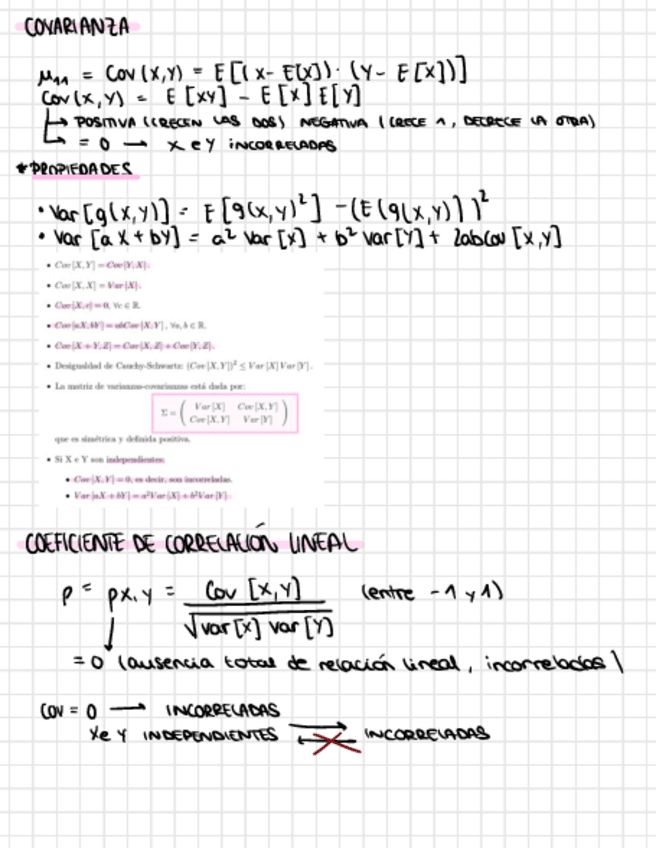 COVARIANZA
μ₁₁ = Cov(x,y) = E[(x-E[x])·(y-E[x])]
Cov(x,y) = E[xy] - E[x]E[y]
↳ POSITIVA (CRECEN LAS DOS) NEGATIVA (CRECE 1, DECRECE LA OTRA)
↳ = 0 → X e Y INCORRELADAS
*PROPIEDADES
• Var[g(x,y)] = E[g(x,y)²] - (E(g(x,y)])²
• Var [aX+bY] = a² Var[x] + b² Var[Y] + 2abCov[x,y]
• Cov[X,Y] = Cov[Y,X].
• Cov[X,X] = Var[X].
• Cov[X,c] = 0, ∀c ∈ ℝ.
• Cov[aX,bY] = abCov[X,Y], ∀a,b ∈ ℝ.
• Cov[X+Y,Z] = Cov[X,Z] + Cov[Y,Z].
• Desigualdad de Cauchy-Schwartz: (Cov[X,Y])² ≤ Var[X]Var[Y].
• La matriz de varianzas-covarianzas está dada por:
Σ = ( Var[X] Cov[X,Y]
Cov[X,Y] Var[Y] )
que es simétrica y definida positiva.
• Si X e Y son independientes:
• Cov[X,Y] = 0, es decir, son incorreladas.
• Var[aX+bY] = a²Var[X] + b²Var[Y].
COEFICIENTE DE CORRELACIÓN LINEAL
ρ = ρx,y = Cov [x,y] / √var[x] var[y] (entre -1 y 1)
= 0 (ausencia total de relación lineal, incorreladas)
COV = 0 → INCORRELADAS
X e Y INDEPENDIENTES ⇄ INCORRELADAS